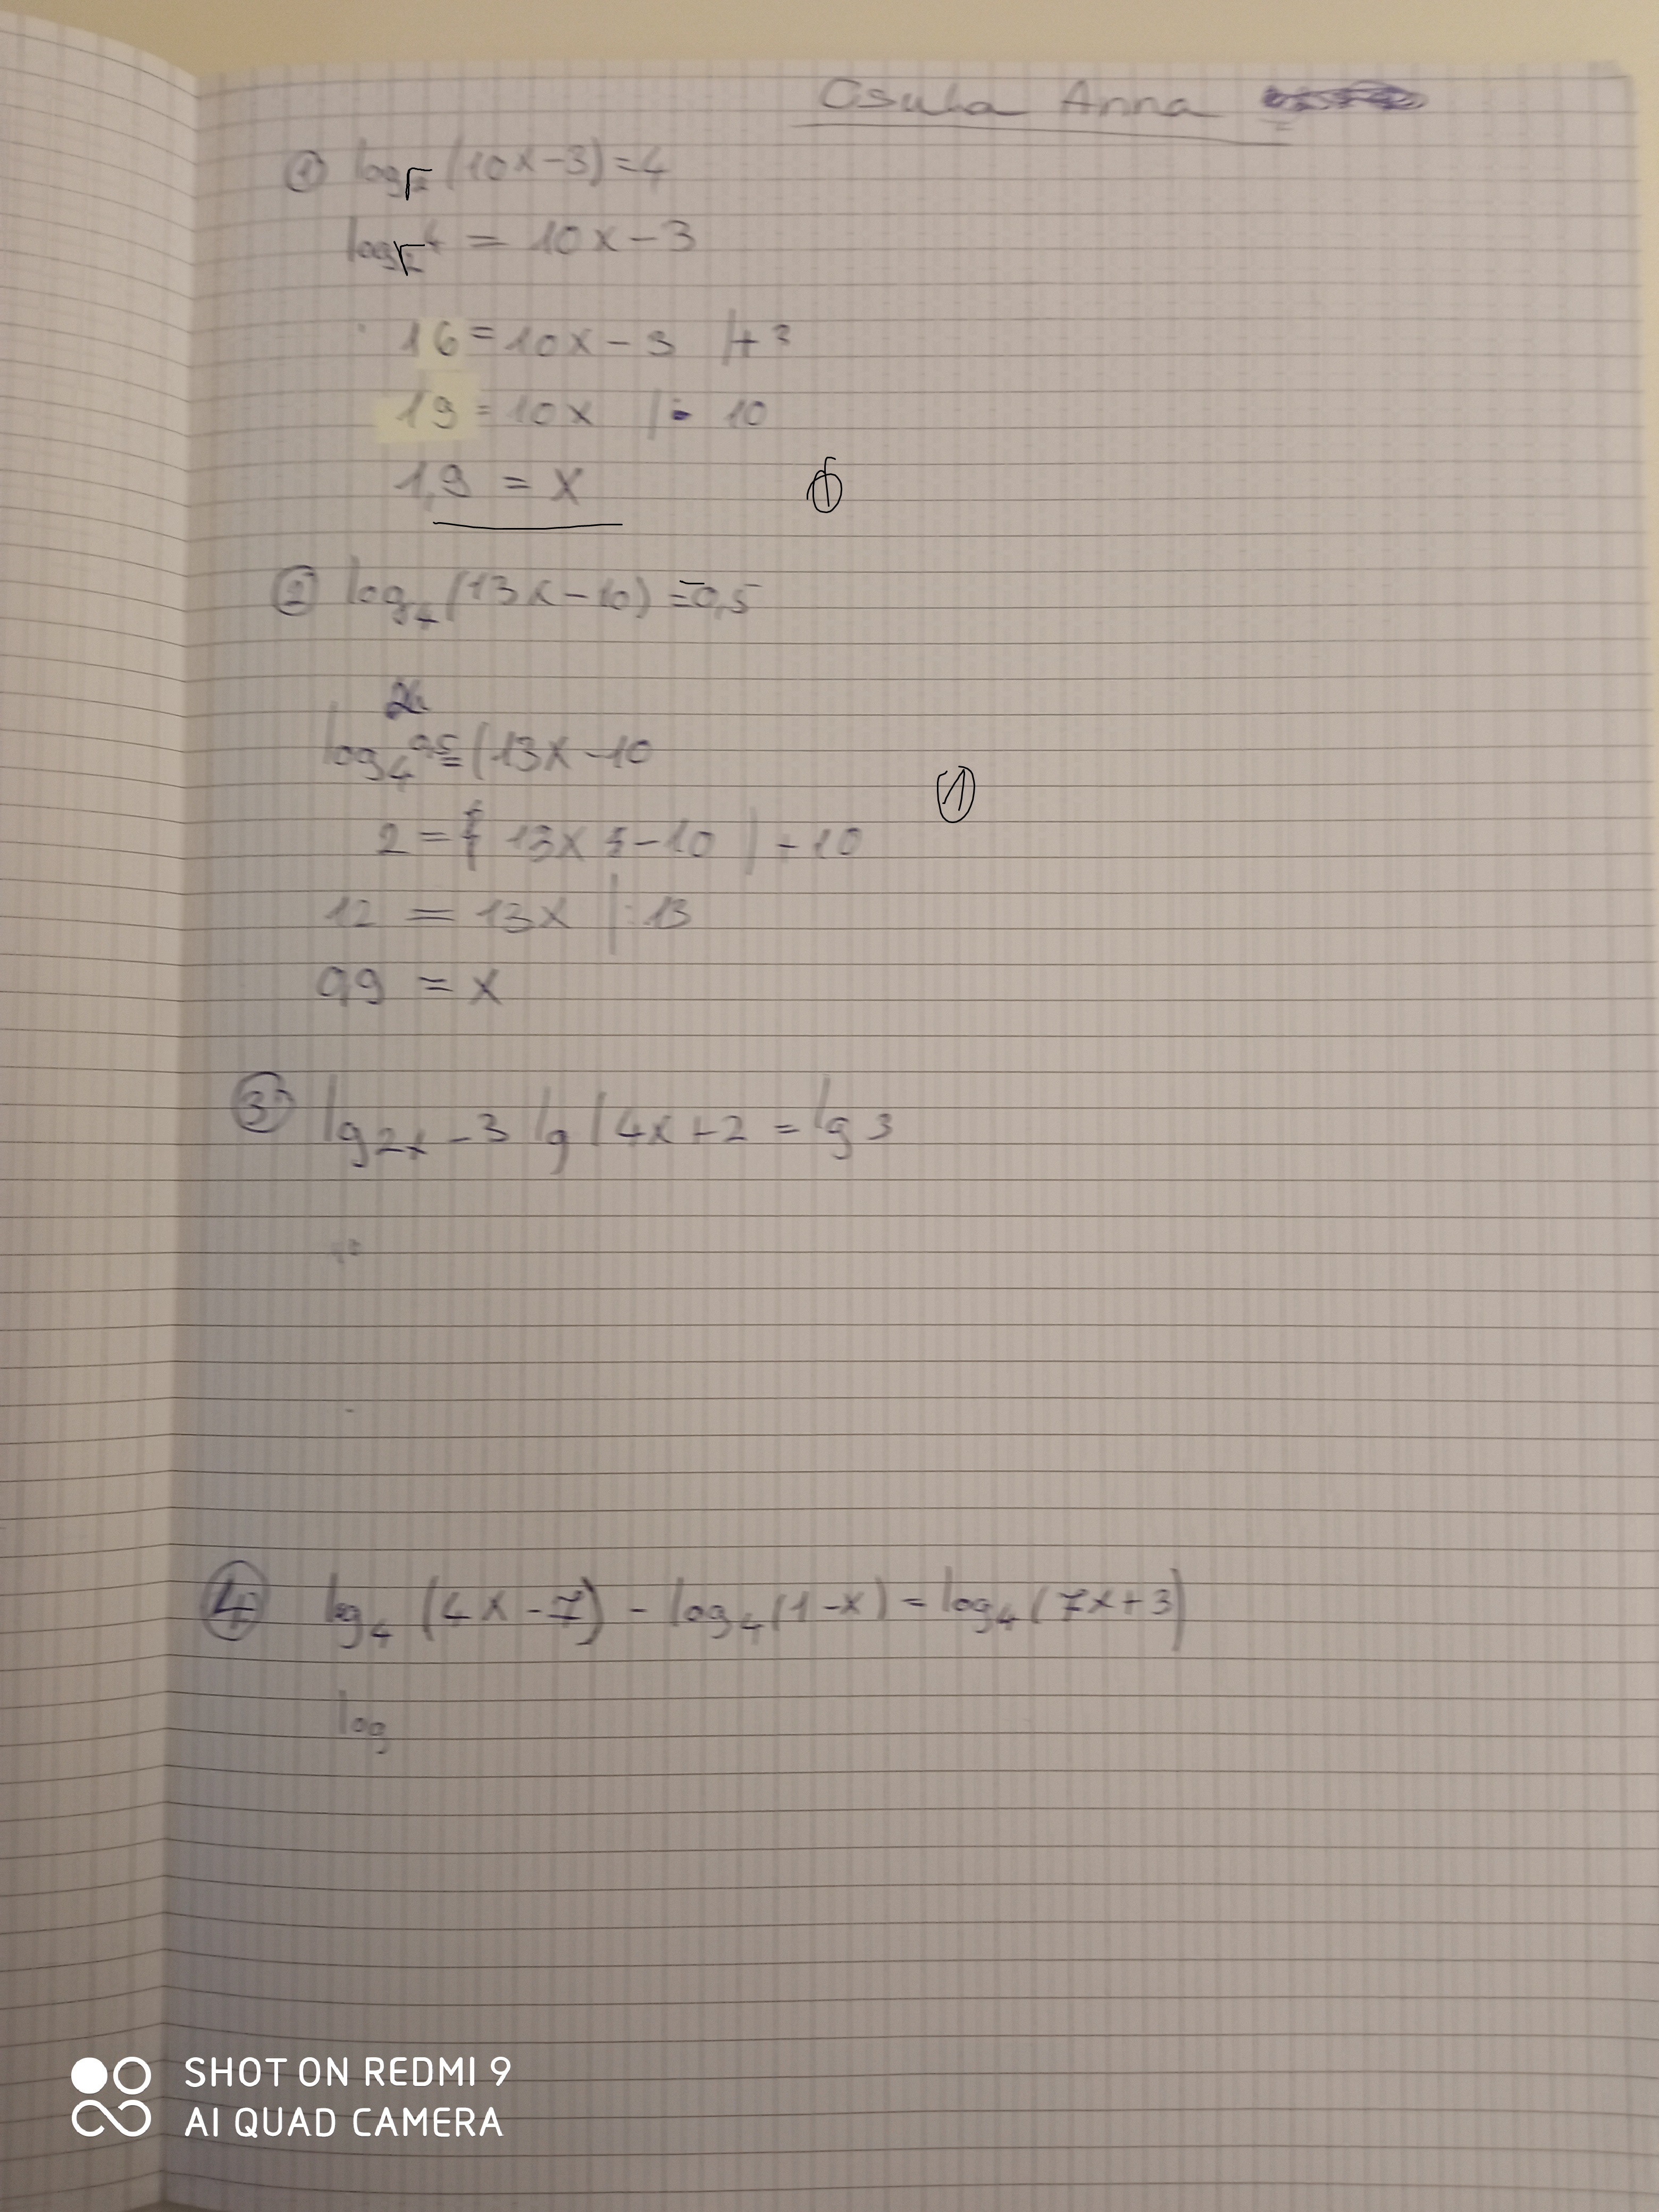 Csuha Anna
① log√2 (10x-3)=4
log√2 4 = 10x-3
16=10x-3 /+3
19=10x /: 10
1,9 = x
①
② log4 (13x-10)=-0,5
log4 0,5=(13x-10
①
2= 13x -10 | +10
12 = 13x | :13
0,9 = x
③ lg2x-3 lg (4x+2 = lg3
④ log4 (4x-7) - log4 (1-x) = log4 (7x+3)
log
SHOT ON REDMI 9
AI QUAD CAMERA